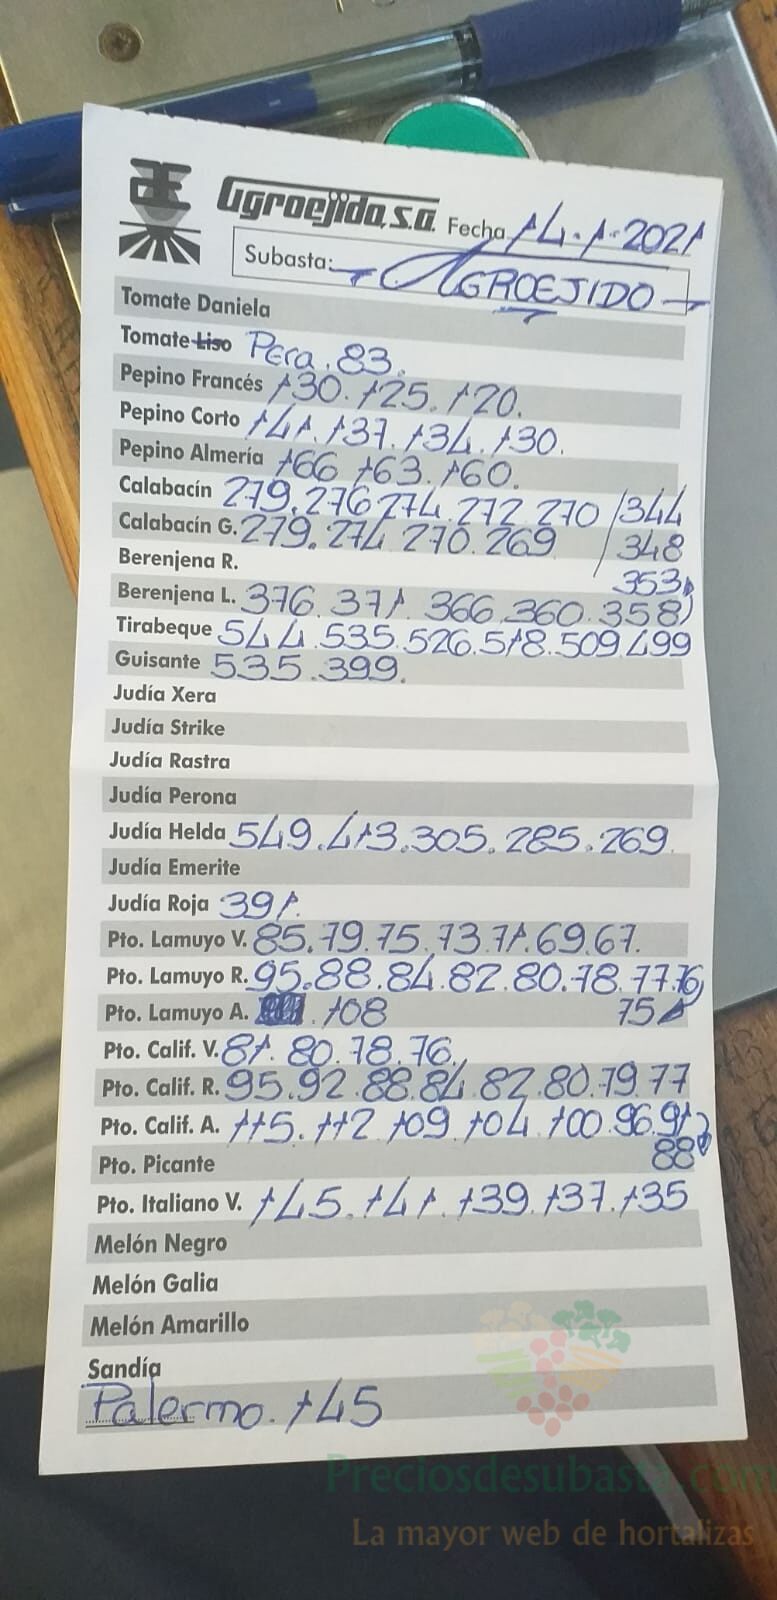 Agroejido, S.A. Fecha 14-1-2021
Subasta: - AGROEJIDO -
Tomate Daniela
Tomate Liso Pera. 83.
Pepino Francés 130. 125. 120.
Pepino Corto 141. 137. 134. 130.
Pepino Almería 166 163. 160.
Calabacín 279. 276 274. 272. 270 / 344
Calabacín G. 279. 274 270. 269 / 348
Berenjena R. 353
Berenjena L. 376. 371. 366. 360. 358
Tirabeque 544. 535. 526. 518. 509 499
Guisante 535. 399.
Judía Xera
Judía Strike
Judía Rastra
Judía Perona
Judía Helda 549. 413. 305. 285. 269
Judía Emerite
Judía Roja 391.
Pto. Lamuyo V. 85. 79. 75. 73. 71. 69. 67.
Pto. Lamuyo R. 95. 88. 84. 82. 80. 78. 77. 76
Pto. Lamuyo A. . 108 75
Pto. Calif. V. 81. 80. 78. 76.
Pto. Calif. R. 95. 92. 88. 84. 82. 80. 79. 77
Pto. Calif. A. 115. 112 109. 104 100. 96. 91
Pto. Picante 88
Pto. Italiano V. 145. 141. 139. 137. 135
Melón Negro
Melón Galia
Melón Amarillo
Sandía
Palermo. 145
Preciosdesubasta.com
La mayor web de hortalizas